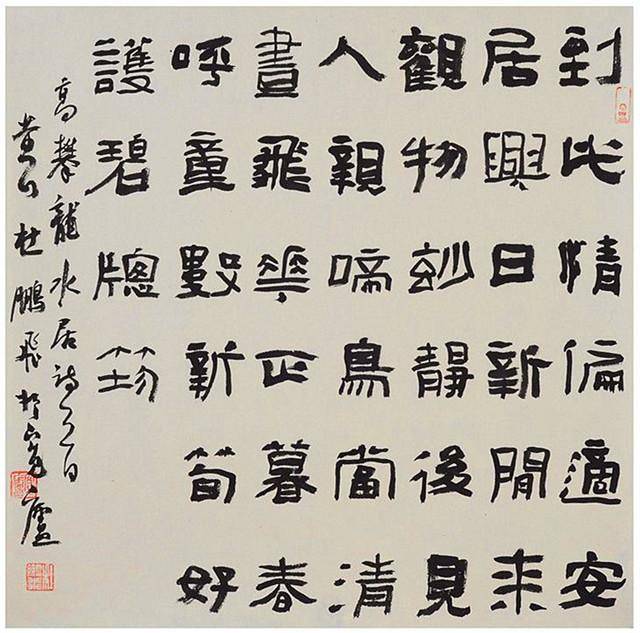 到此情偏適安
居興日新閒來
觀物妙靜後見
人親啼鳥當清
晝飛華正暮春
呼童數新筍好
護碧牕筠
高攀龍水居詩
杜鵬飛於廬